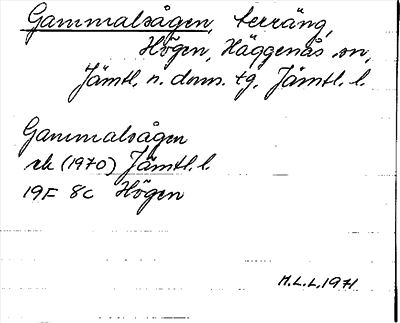 Gammalsågen, terräng,
Högen, Häggenås sn,
Jämtl. n. doms. tg, Jämtl. l.
Gammalsågen
ek (1970) Jämtl. l.
19F 8c Högen
M.L.L. 1971